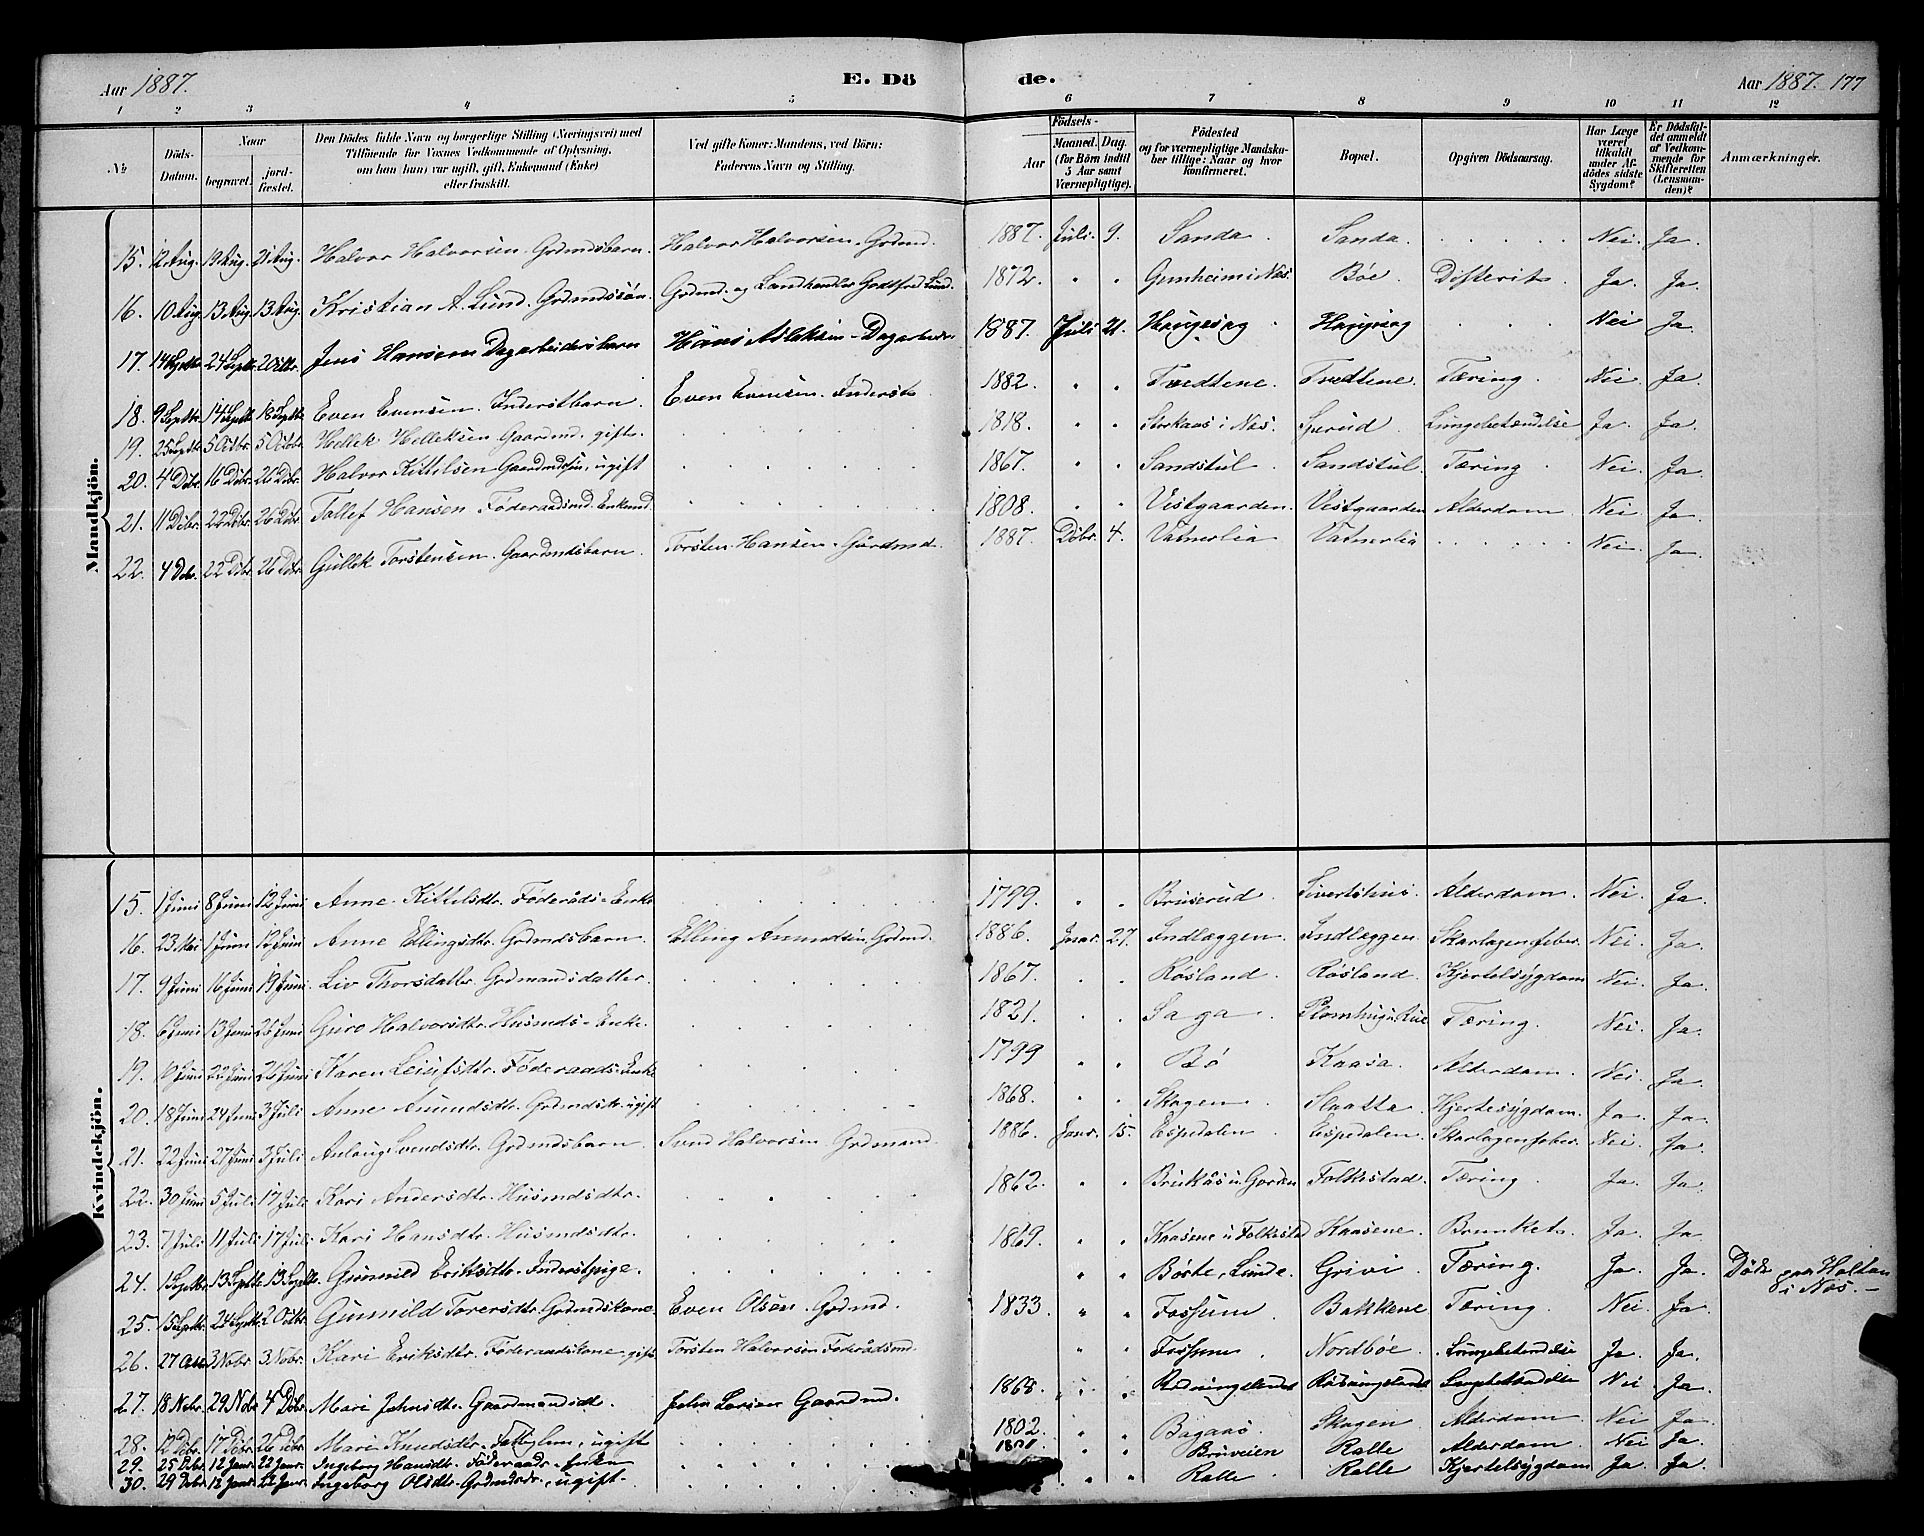 Aar 1887. E. Dö de. Aar 1887. 177
1 2 3 4 5 6 7 8 9 10 11 12
№ Döds-Datum. Naar begravet. jord-fæstet. Den Dödes fulde Navn og borgerlige Stilling (Næringsvei) med Tilföiende for Voxnes Vedkommende af Oplysning, om han (hun) var ugift, gift, Enkemand (Enke) eller fraskilt. Ved gifte Koner: Mandens, ved Börn: Faderens Navn og Stilling. Födsels- Aar Maaned. Dag. (for Börn indtil 5 Aar samt Værnepligtige). Födested og for værnepligtige Mandska-ber tillige: Naar og hvor konfirmeret. Bopæl. Opgiven Dödsaarsag. Har Læge været tilkaldt under Af-dödes sidste Sygdom? Er Dödsfal-det anmeldt af Vedkom-mende for Skifteretten (Lensman-den)? Anmærkninger.
Mandkjön.
15. 12 Aug. 19 Aug. 21 Aug. Halvor Halvorsen. Grdmdsbarn. Halvor Halvorsen. Grdmd. 1887. Juli 9. Sanda. Sanda. Nei. Ja.
16. 10 Aug. 13 Aug. 13 Aug. Kristian A. Lund. Grdmdssön. Grdmd. og Landhandler Gottfred Lund. 1872. " " Gunheim i Næs. Böe. Difterit. Ja. Ja.
17. 14 Septbr. 24 Septbr. 2 Oktbr. Jens Hansen Dagarbeidersbarn Hans Aslaksen - Dagarbeider 1887. Juli 21. Haugesag Haugesag Nei Ja.
18. 9 Septbr. 14 Septbr. 18 Septbr. Even Evensen. Inderstbarn. Even Evensen. Inderst. 1882. " " Tvedtene. Tvedtene. Tæring. Nei. Ja.
19. 25 Septbr. 5 Octbr. 5 Octbr. Hellek Helleksen Gaardmd. gift. 1818. " " Storkaas i Næs. Sperud. Lungebetændelse Ja. Ja.
20. 4 Dbr. 16 Dbr. 26 Dbr. Halvor Kittelsen Gaardmdssön, ugift 1867. " " Sandstul. Sandstul. Tæring. Nei. Ja.
21. 11 Dbr. 22 Dbr. 26 Dbr. Tollef Hansen Föderaadsmd. Enkemd. 1808. " " Vestgaarden. Vestgaarden Alderdom. Nei. Ja.
22. 4 Dbr. 22 Dbr. 26 Dbr. Gullek Torstensen. Gaardmdsbarn. Torsten Hansen. Gårdmd. 1887. Dbr. 4. Vatnerlia Vatnerlia Nei. Ja.
Kvindekjön.
15. 1 Juni 8 Juni 12 Juni Anne Kittelsdtr. Föderåds-Enke 1799. " " Bruserud. Sivertshus. Alderdom. Nei. Ja.
16. 23 Mai 1 Juni 12 Juni Anne Ellingsdtr. Grdmdsbarn. Elling Amundsen Grdmd. 1886. Janr. 27. Indlæggen. Indlæggen. Skarlagensfeber. Nei. Ja.
17. 9 Juni 16 Juni 19 Juni Liv Thorsdatter. Grdmandsdatter. 1867. " " Røsland. Røsland. Kjertelsygdom Nei. Ja.
18. 6 Juni 13 Juni 26 Juni Guro Halvorsdtr. Husmds-Enke. 1821. " " Saga. Plomhug u. Rue Tæring. Nei. Ja.
19. 10 Juni 22 Juni 26 Juni Karen Leiufsdtr. Föderaads-Enke 1799 " " Bö Kaasa. Alderdom. Nei. Ja.
20. 18 Juni 24 Juni 3 Juli Anne Amundsdtr. Grdmdsdtr. ugift 1868. " " Skogen. Slaatta. Kjertelsygdom. Ja. Ja.
21. 22 Juni 27 Juni 3 Juli Aslaug Svendsdtr. Grdmdsbarn. Svend Halvorsen. Grdmand. 1886. Janr. 15. Espedalen. Espedalen. Skarlagensfeber. Nei. Ja.
22. 30 Juni 5 Juli 17 Juli Kari Andersdtr. Husmdsdtr. 1862. " " Brukås u. Gården Folkestad. Tæring. Ja. Ja.
23. 7 Juli 11 Juli 17 Juli Kari Hansdtr. Husmdsdtr. 1869. " " Kaasene u. Folkestad Kaasene. Brunket. Ja. Ja
24. 1 Septbr. 13 Septbr. 13 Septbr. Gunnild Eriksdtr. Inderstpige. " " Börte, Lunde. Grivi. Tæring. Ja. Ja. Döde paa Holtan i Næs.
25. 15 Septbr. 24 Septbr. 2 Octbr. Gunnild Toresdtr. Grdmdskone. Even Olsen. Grdmd. 1833. " " Fossum. Bakkene Tæring. Nei. Ja.
26. 27 Okt 3 Nobr. 3 Nobr. Kari Eriksdtr. Föderaadskone gift. Torsten Halvorsen Föderådsmd. " " Fossum. Nordböe. Lungebetændelse Ja. Ja.
27. 18 Nobr. 29 Nobr. 4 Dbr. Mari Johnsdtr. Gaardmandsdtr. John Larsen Gaardmd. 1868. " " Nei Ja.
28. 12 Dbr. 17 Dbr. 26 Dbr. Mari Knudsdtr. Fattiglem, ugift 1802. " " Bagaas. Skogen. Alderdom. Nei Ja.
29. 25 Dbr. 12 Janr. 22 Janr. Ingeborg Hansdtr. Föderaads-Enke 1801 " " Bruveien Ralle. Alderdom. Nei Ja.
30. 29 Dbr. 12 Janr. 22 Janr. Ingeborg Olsdtr. Grdmdsdtr., ugift. " " Ralle. Ralle. Kjertelsygdom Ja. Ja.